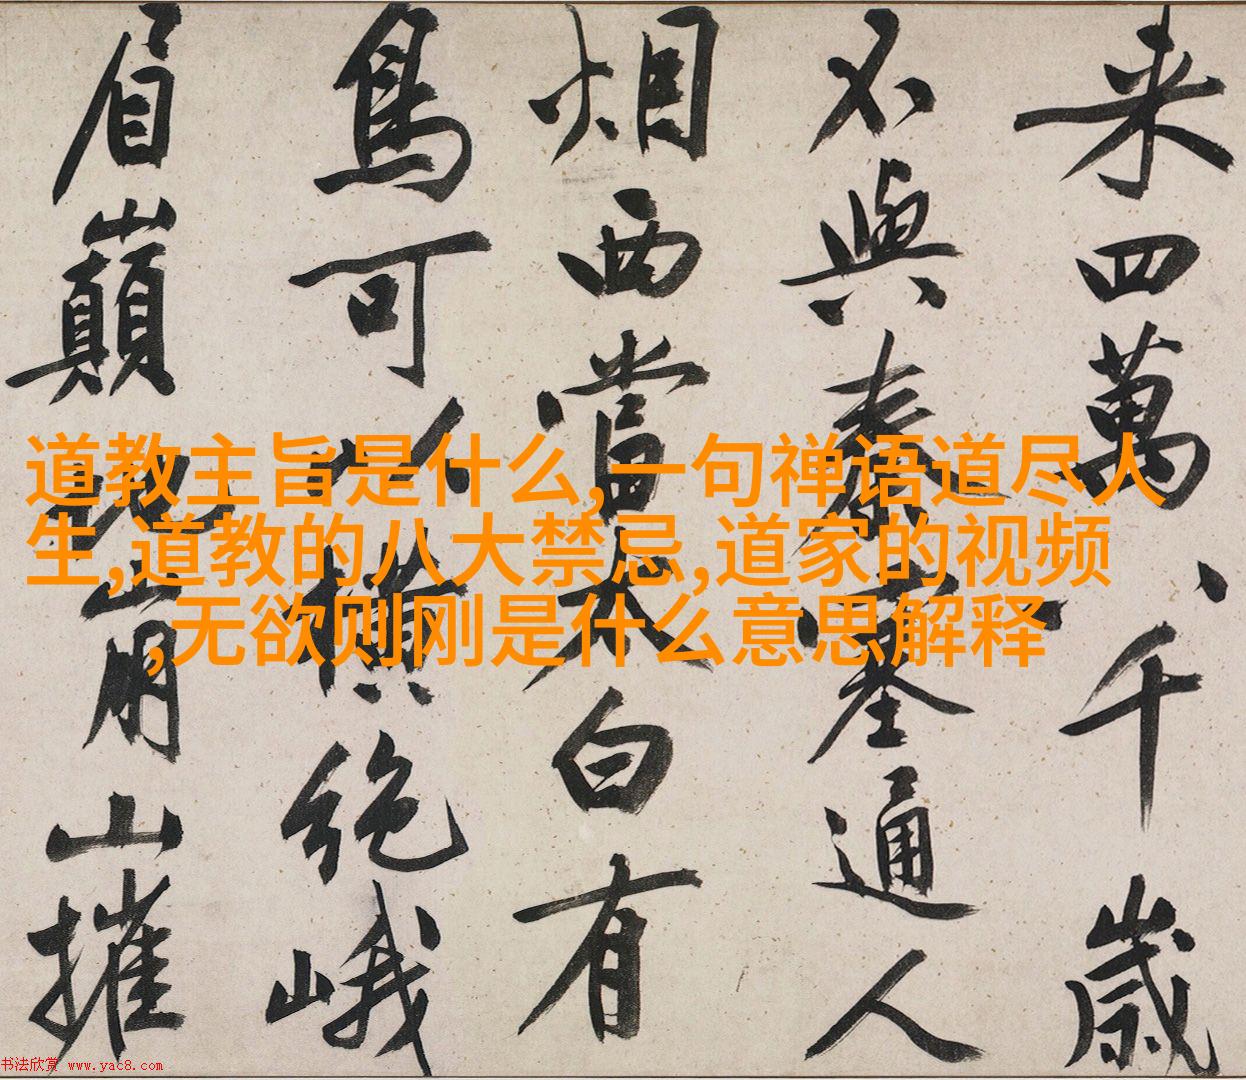 来四萬八千歲
不與秦塞通人
烟西當太白有
鳥可以橫絕峨
眉巔地崩山摧
道教主旨是什么,一句禅语道尽人
生,道教的八大禁忌,道家的视频
,无欲则刚是什么意思解释
书法欣赏 www.yac8.com